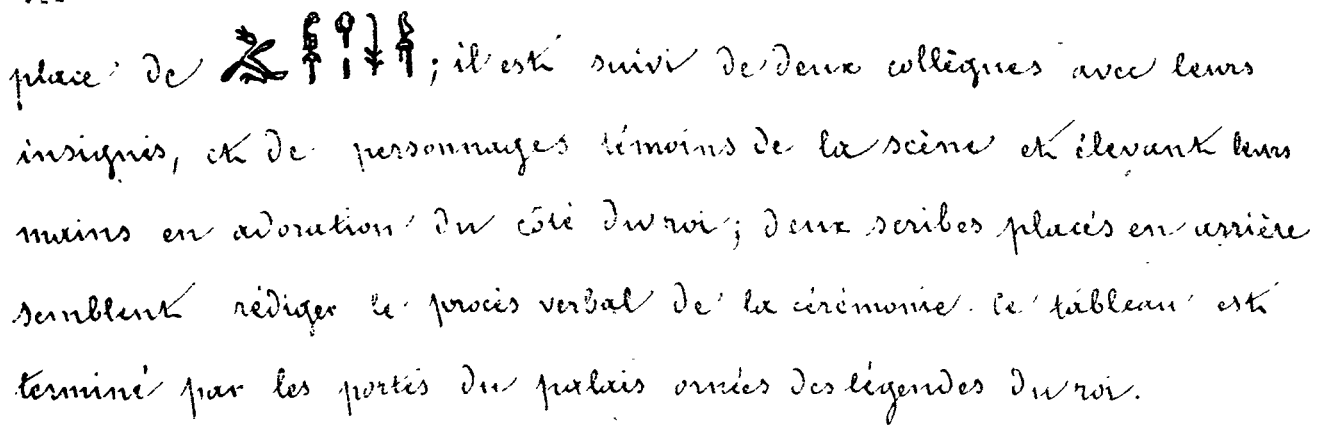 place de ; il est suivi de deux collègues avec leurs
insignes, et de personnages témoins de la scène et élevant leurs
mains en adoration du côté du roi; deux scribes placés en arrière
semblent rédiger le procès verbal de la cérémonie. Ce tableau est
terminé par les portes du palais ornées des légendes du roi.